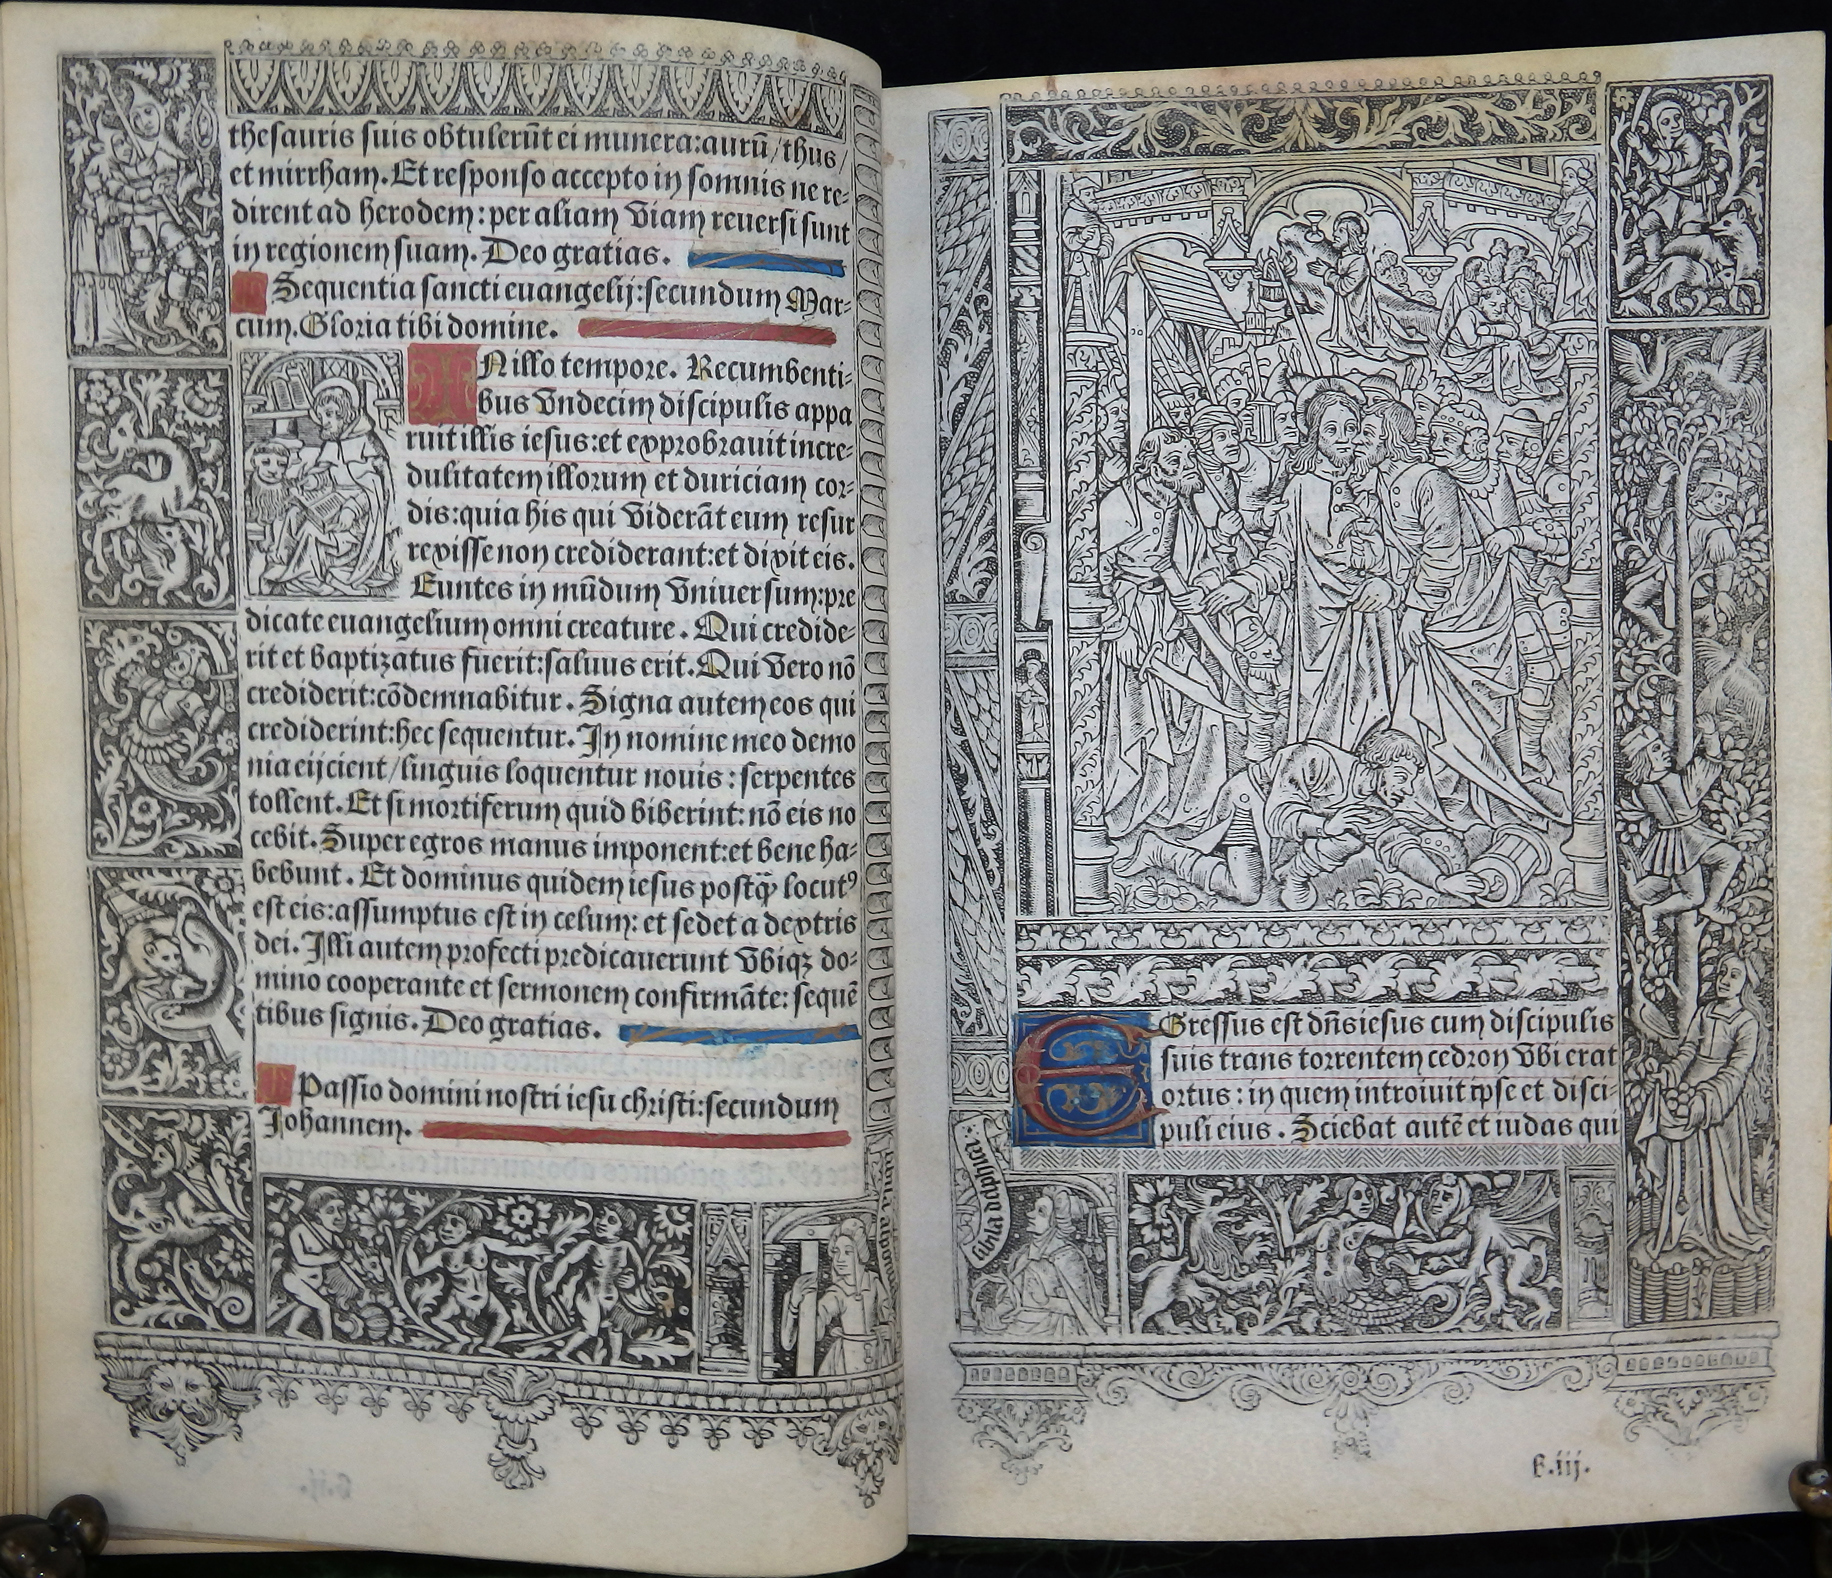 thesauris suis obtulerūt ei munera:aurū/thus/
et mirrham. Et responso accepto in somnis ne re-
dirent ad herodem: per aliam viam reuersi sunt
in regionem suam. Deo gratias.
Sequentia sancti euangelij:secundum Mar-
cum. Gloria tibi domine.
IN illo tempore. Recumbenti-
bus vndecim discipulis appa
ruit illis iesus:et exprobrauit incre-
dulitatem illorum et duriciam cor-
dis:quia his qui viderāt eum resur
rexisse non crediderant:et dixit eis.
Euntes in mūdum vniuersum:pre
dicate euangelium omni creature. Qui credide-
rit et baptizatus fuerit:saluus erit. Qui vero nō
crediderit:cōdemnabitur. Signa autem eos qui
crediderint:hec sequentur. In nomine meo demo
nia eijcient/linguis loquentur nouis: serpentes
tollent. Et si mortiferum quid biberint: nō eis no
cebit. Super egros manus imponent:et bene ha-
bebunt. Et dominus quidem iesus postq̄ locutꝰ
est eis:assumptus est in celum: et sedet a dextris
dei. Illi autem profecti predicauerunt vbiqꝫ do-
mino cooperante et sermonem confirmāte: sequē
tibus signis. Deo gratias.
Passio domini nostri iesu christi:secundum
Johannem.
EGressus est dn̄s iesus cum discipulis
suis trans torrentem cedron vbi erat
ortus: in quem introiuit ipse et disci-
puli eius. Sciebat autē et iudas qui
sibila delphica:
b.iij.